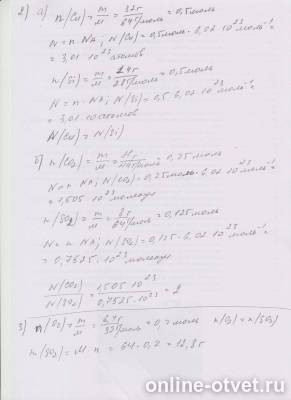 2) а) n(Cu) = m/M = 32г/64г/моль = 0,5моль
N = n · NA; N(Cu) = 0,5моль · 6,02 · 10²³ моль⁻¹
= 3,01 · 10²³ атомов
n(Si) = m/M = 14г/28г/моль = 0,5моль
N = n · NA; N(Si) = 0,5 · 6,02 · 10²³ моль⁻¹
= 3,01 · 10 атомов
N(Cu) = N(Si)
б) n(CO2) = m/M = 11г/44г/моль 0,25моль
N = n · NA; N(CO2) = 0,25моль · 6,02 · 10²³ моль⁻¹
= 1,505 · 10²³ молекул
n(SO2) = m/M = 8г/64г/моль = 0,125моль
N = n · NA; N(SO2) = 0,125 · 6,02 · 10²³ моль⁻¹
= 0,7525 · 10²³ молекул
N(CO2)/N(SO2) = 1,505 · 10²³/0,7525 · 10²³ = 2
3) n(O2) = m/M = 6,4г/32г/моль = 0,2моль n(O2) = n(SO2)
m(SO2) = M · n = 64 · 0,2 = 12,8г
online-otvet.ru